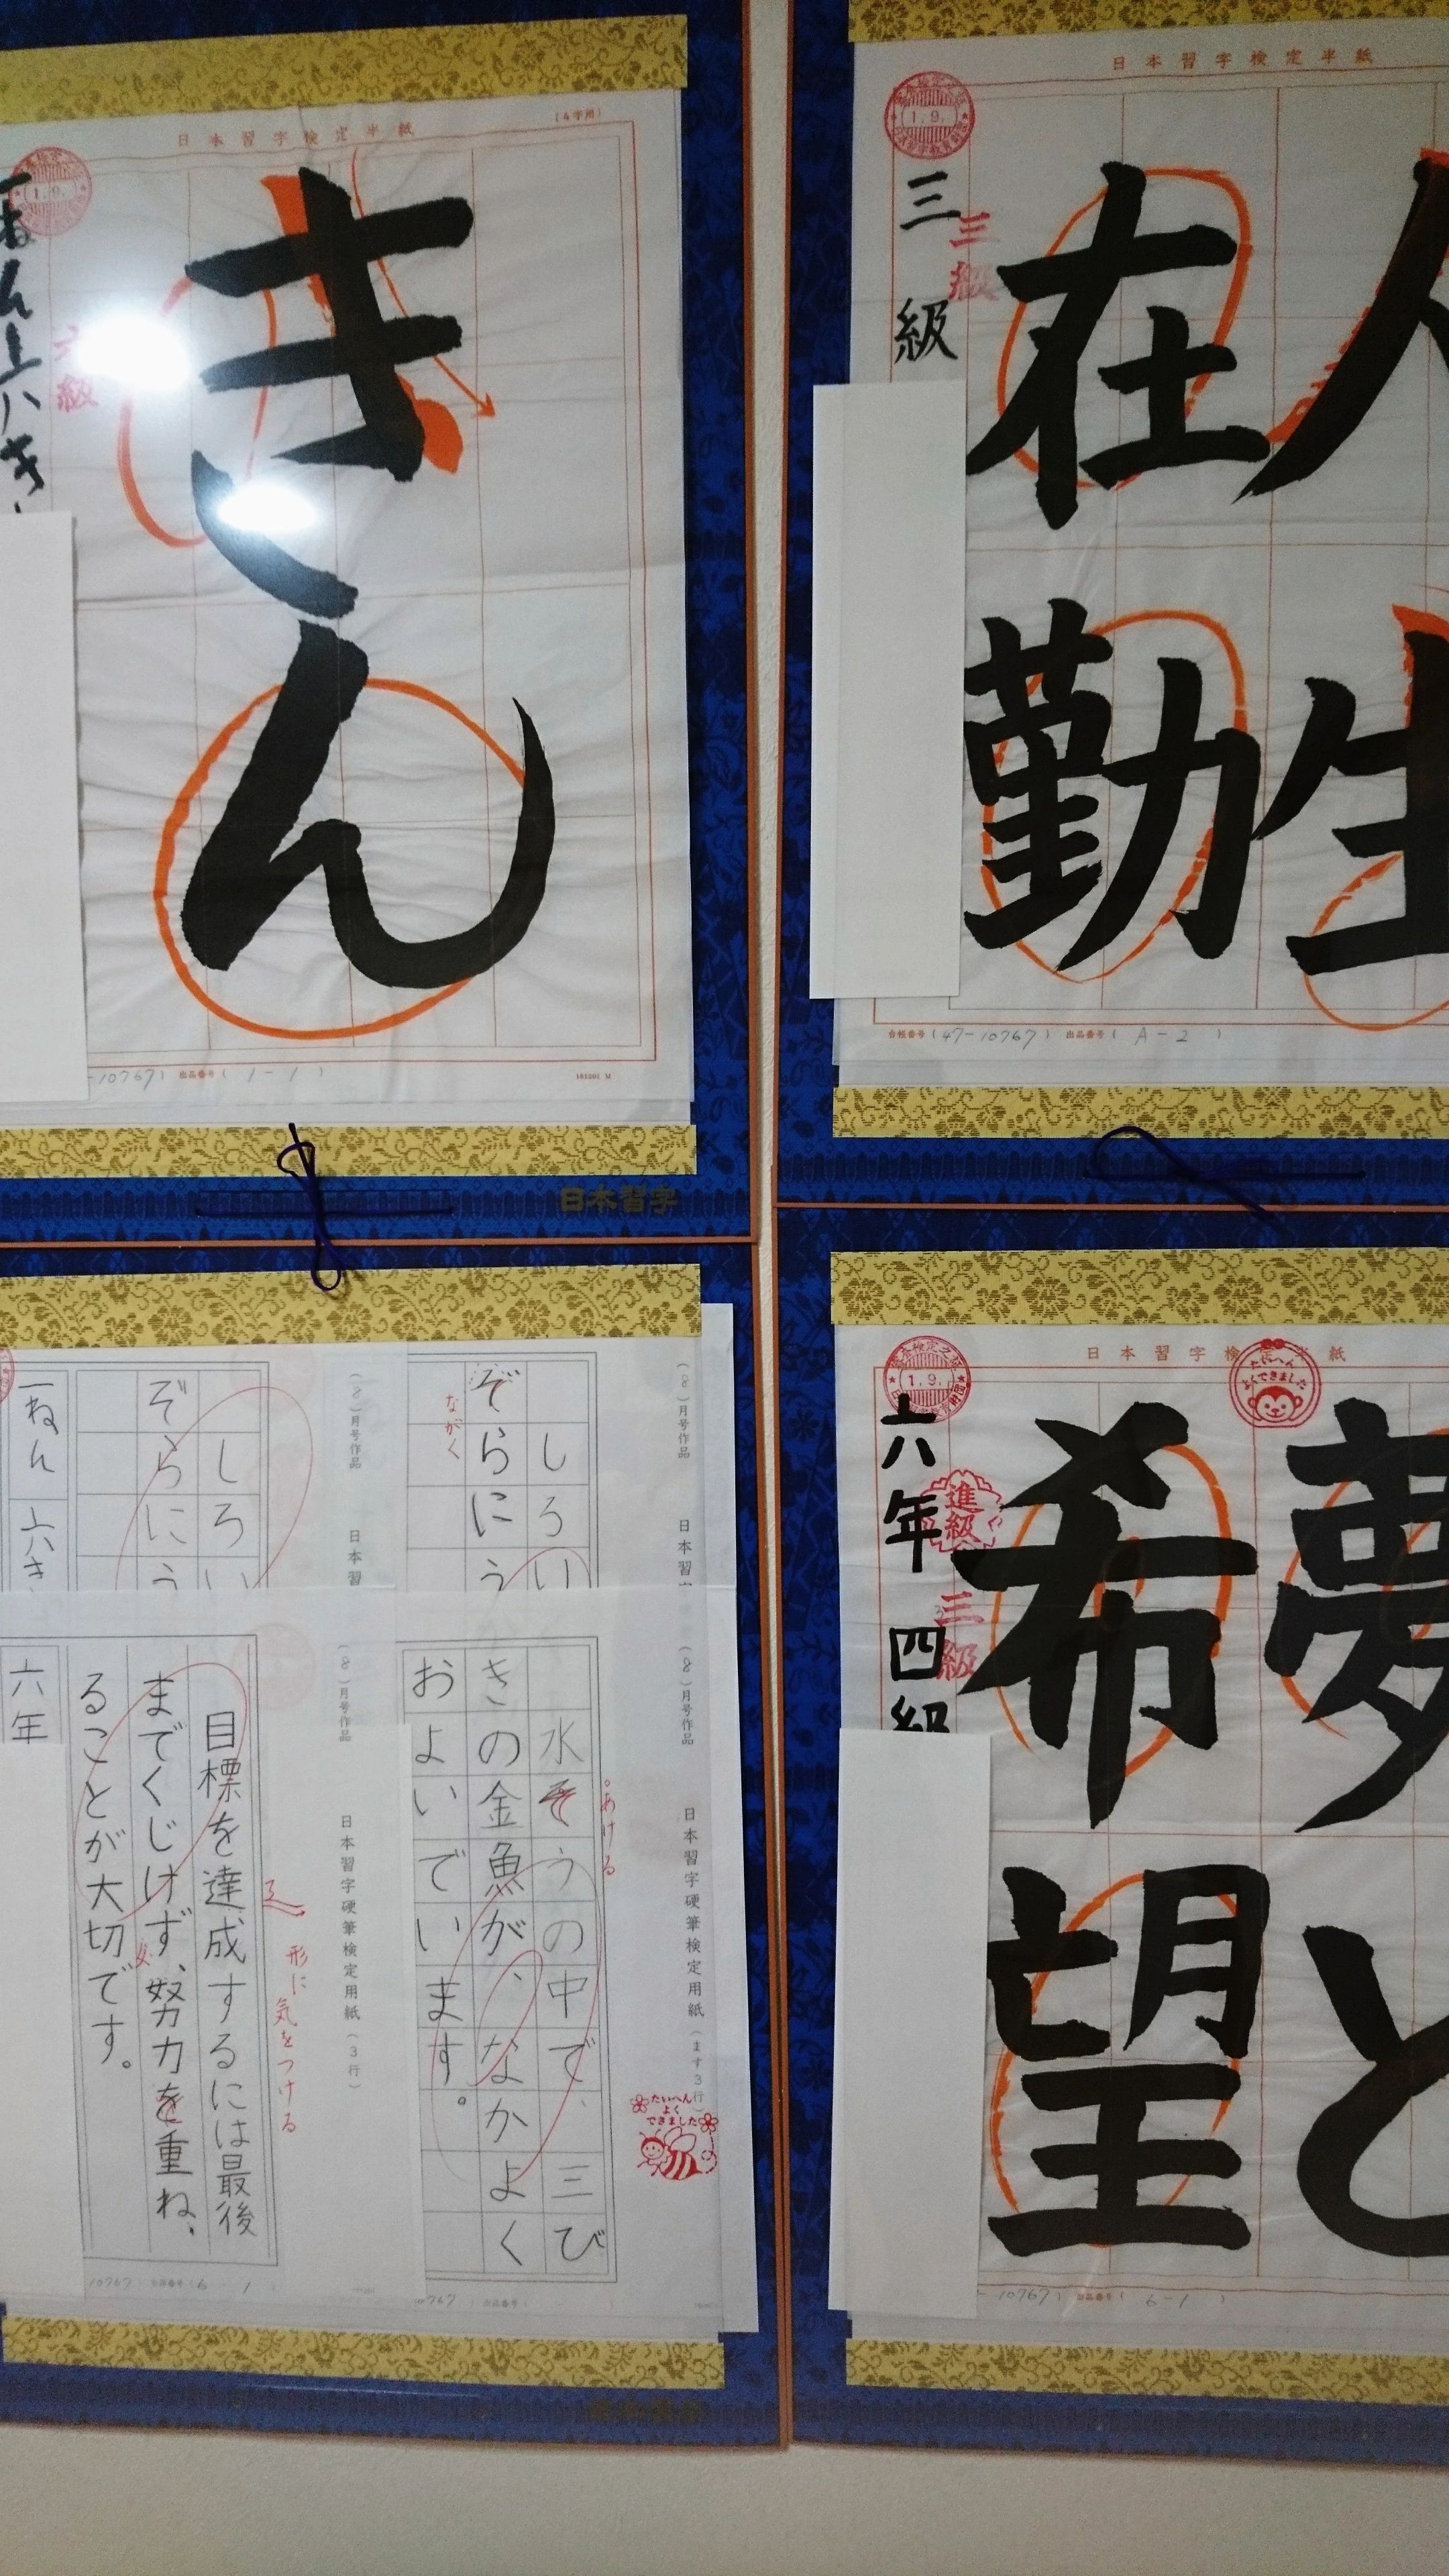 日本習字検定半紙
(4字用)
1.9.
きん
級
出品番号(1-1)
181201 M
日本習字
日本習字検定半紙
1.9.
人生
在勤
三級
三級
台帳番号(47-10767) 出品番号(A-2)
(8)月号作品
日本習
しろい
ぞらにう
ながく
(8)月号作品
日本習
しろい
ぞらにう
一ねん 六き
(8)月号作品 日本習字硬筆検定用紙(ます3行)
水そうの中で、三び
きの金魚が、なかよく
およいでいます。
あける
たいへん
よく
できました
(8)月号作品 日本習字硬筆検定用紙(3行)
目標を達成するには最後
までくじけず、努力を重ね、
ることが大切です。
形に気をつける
六年
10767 出品番号(6-1
日本習字検定半紙
1.9.
たいへん
よくできました
夢と
希望
進級
三級
六年 四級
-10767) 出品番号(6-1)